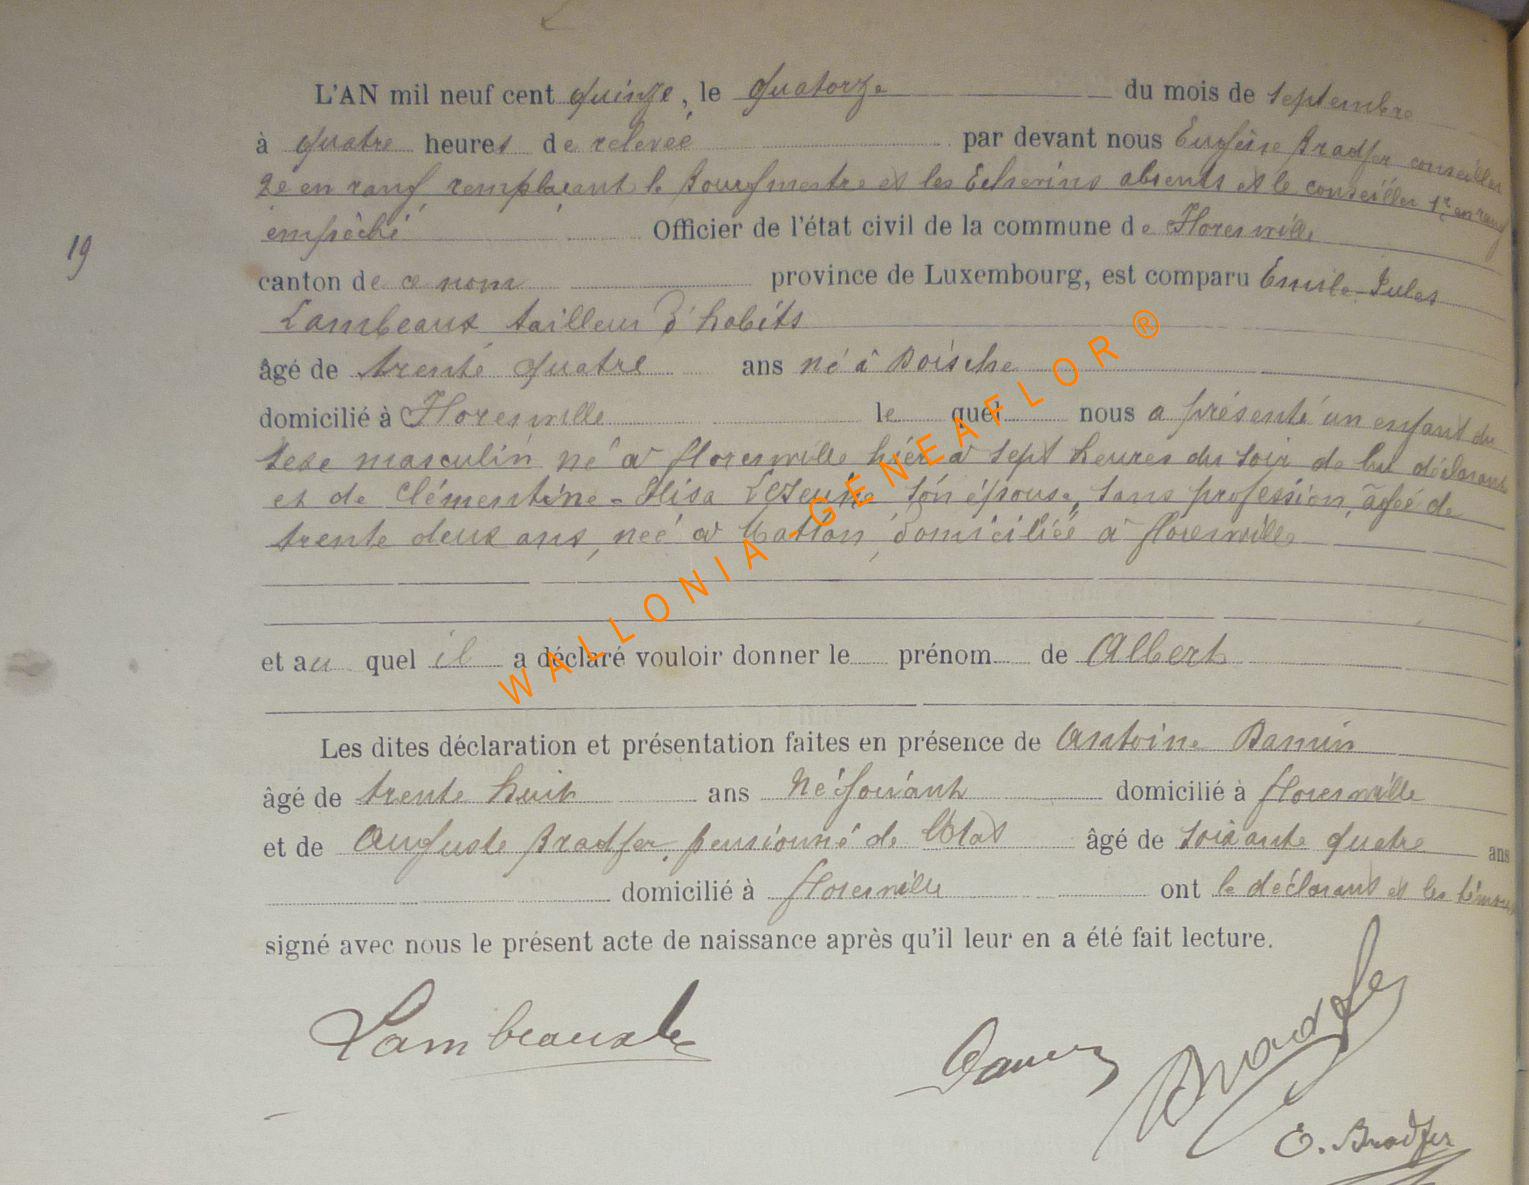 L'AN mil neuf cent quinze, le quatorze du mois de septembre
à quatre heures de relevée par devant nous Eugène Bradfer conseiller
2e en rang, remplaçant le Bourgmestre et les Echevins absents et le conseiller 1r en rang
empêché Officier de l'état civil de la commune de Florenville
19
canton de ce nom province de Luxembourg, est comparu Emile Jules
Lambeaux tailleur d'habits
âgé de trente quatre ans né à Doische
domicilié à Florenville lequel nous a présenté un enfant du
sexe masculin né à Florenville hier à sept heures du soir de lui déclarant
et de Clémentine-Elisa Lejeune son épouse, sans profession, âgée de
trente deux ans, née à Matton, domiciliée à Florenville
et au quel il a déclaré vouloir donner le prénom de Albert
Les dites déclaration et présentation faites en présence de Antoine Damin
âgé de trente huit ans Négociant domicilié à Florenville
et de Auguste Bradfer, pensionné de l'Etat âgé de soixante quatre ans
domicilié à Florenville ont le déclarant et les témoins
signé avec nous le présent acte de naissance après qu'il leur en a été fait lecture.
Lambeaux
Damin Bradfer
E. Bradfer
WALLONIA-GENEAFLOR ®